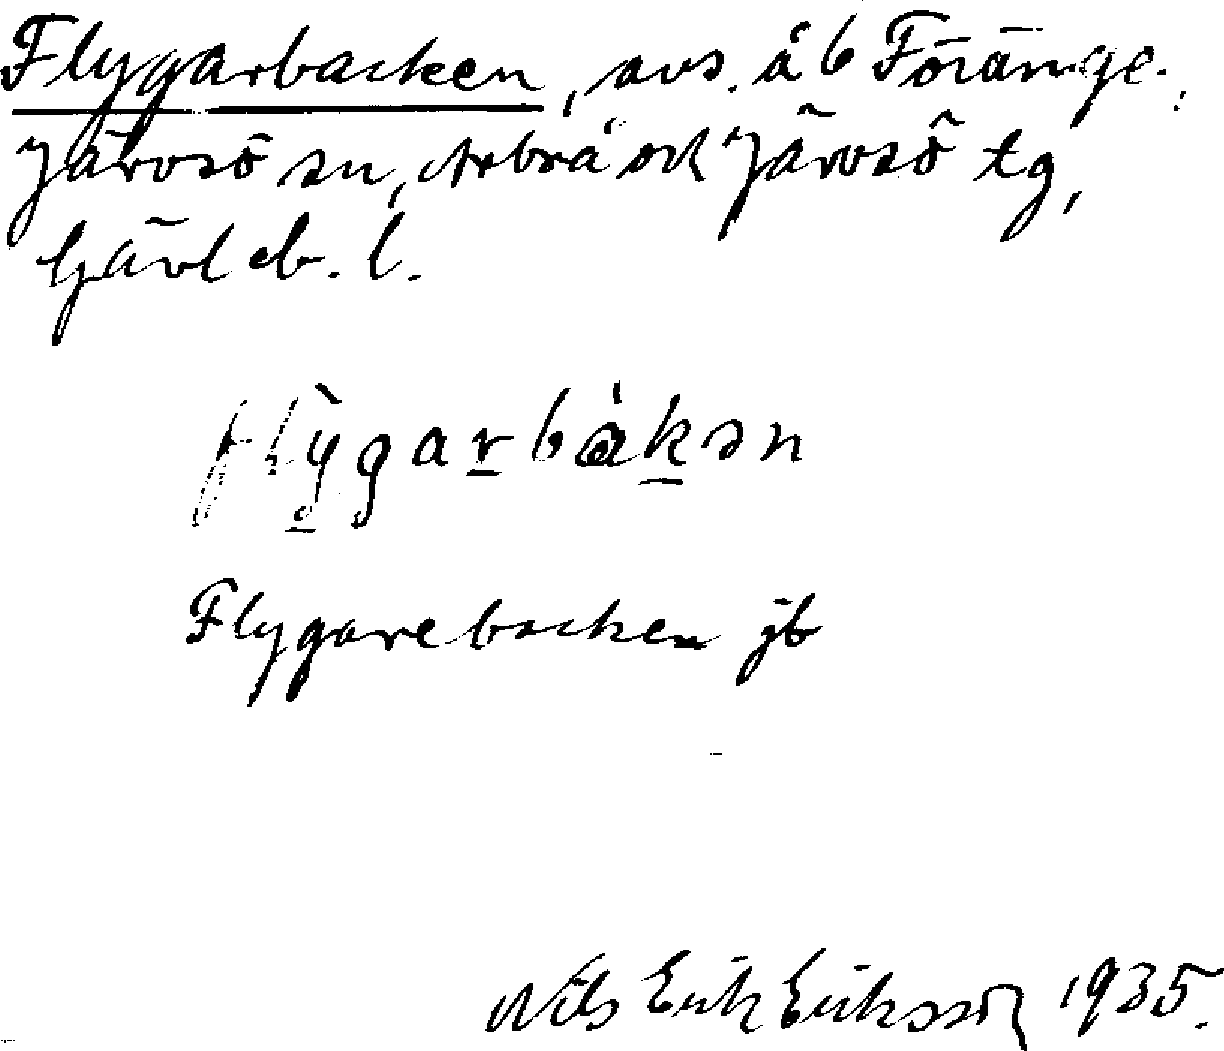 Flygarbacken, avs. å b Föränge.
Järvsö sn, Arbrå och Järvsö tg,
Gävleb. l.
flỳgarbàkən
Flygarebacken jb
Nils Erik Eriksson 1935.